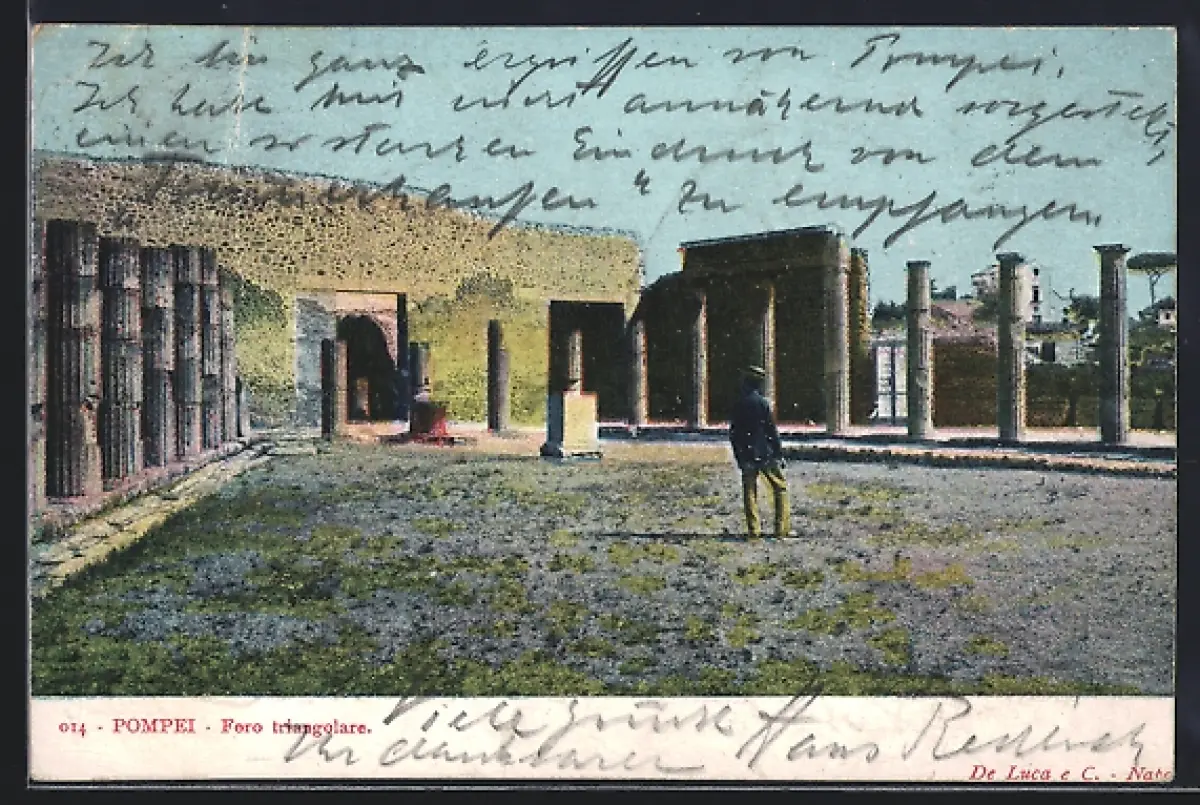 Ich bin ganz ergriffen von Pompei.
Ich habe mir nicht annähernd vorgestellt,
einen so starken Eindruck von dem
„Trümmerhaufen“ zu empfangen.
014 - POMPEI - Foro triangolare.
Viele Grüsse
Ihr dankbarer Hans
De Luca e C. -